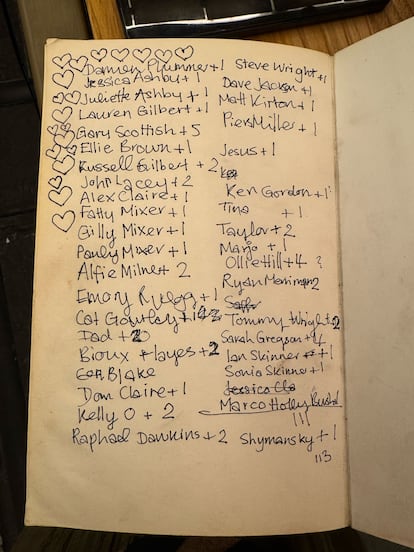 Damien Plummer + 1
Jessica Ashby + 1
Juliette Ashby + 1
Lauren Gilbert + 1
Gary Scottish + 5
Ellie Brown + 1
Russell Gilbert + 2
John Lacey + 2
Alex Claire + 1
Fatty Mixer + 1
Gilly Mixer + 1
Pauly Mixer + 1
Alfie Milne + 2
Emory + 1
Cat
Dad +
Bioux Hayes + 2
Blake
Dom Claire + 1
Kelly O + 2
Raphael Dawkins + 2
Steve Wright + 1
Dave Jackson + 1
Matt Kirton + 1
Piers Miller + 1
Jesus + 1
Ken Gordon + 1
Tina + 1
Taylor + 2
Marjo + 1
Ollie Hill + 4 ?
Ryan
Tommy Wright
Sarah Gregson + 4
Ian Skinner + 1
Sonia Skinner + 1
Jessica
Marco Holly
Shymansky + 1
113